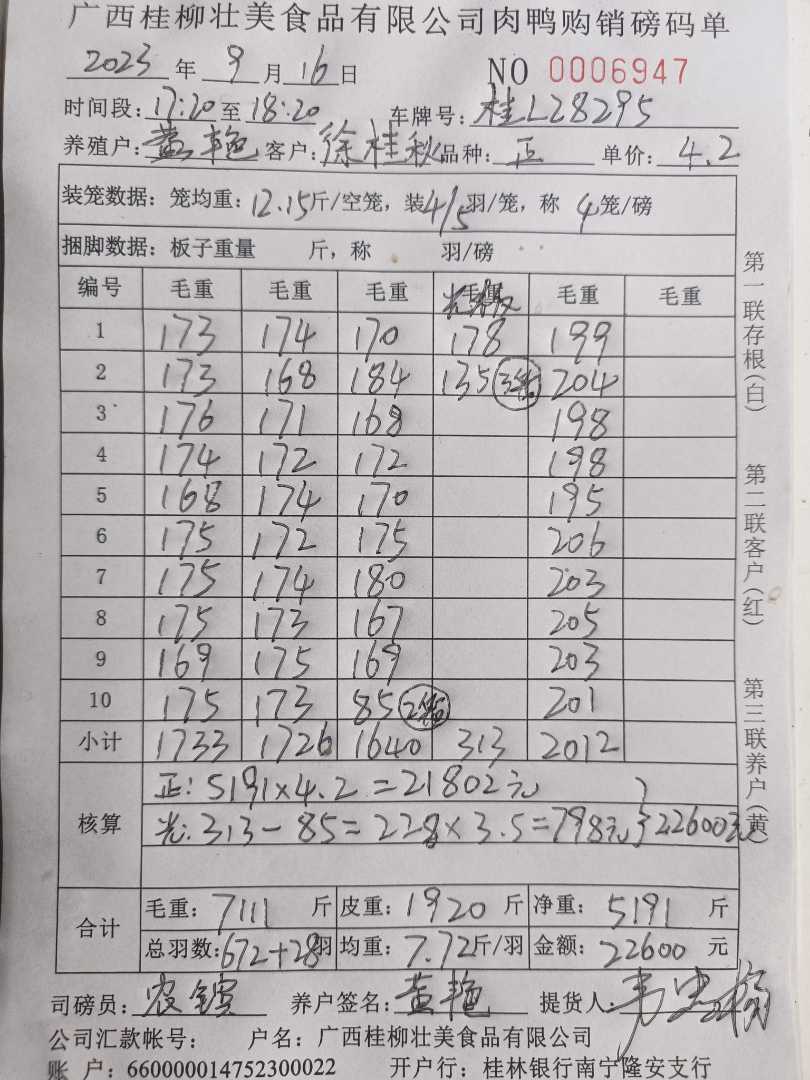 广西桂柳壮美食品有限公司肉鸭购销磅码单
2023 年 9 月 16 日 NO 0006947
时间段: 17:20 至 18:20 车牌号: 桂L28295
养殖户: 黄艳 客户: 徐桂秋 品种: 正 单价: 4.2
装笼数据: 笼均重: 12.15 斤/空笼, 装 4/5 羽/笼, 称 4 笼/磅
捆脚数据: 板子重量 斤, 称 羽/磅
编号 毛重 毛重 毛重 毛重 毛重
1 173 174 170 178 199
2 173 168 184 135 3笼 204
3 176 171 168 198
4 174 172 172 198
5 168 174 170 195
6 175 172 175 206
7 175 174 180 203
8 175 173 167 205
9 169 175 169 203
10 175 173 85 2笼 201
小计 1733 1726 1640 313 2012
核算
正: 5191×4.2=21802元
光: 313-85=228×3.5=798元 } 22600元
合计
毛重: 7111 斤 皮重: 1920 斤 净重: 5191 斤
总羽数: 672+28 羽 均重: 7.72 斤/羽 金额: 22600 元
司磅员: 农 养户签名: 黄艳 提货人: 韦
公司汇款帐号: 户名: 广西桂柳壮美食品有限公司
账 户: 660000014752300022 开户行: 桂林银行南宁隆安支行
第一联存根(白) 第二联客户(红) 第三联养户(黄)